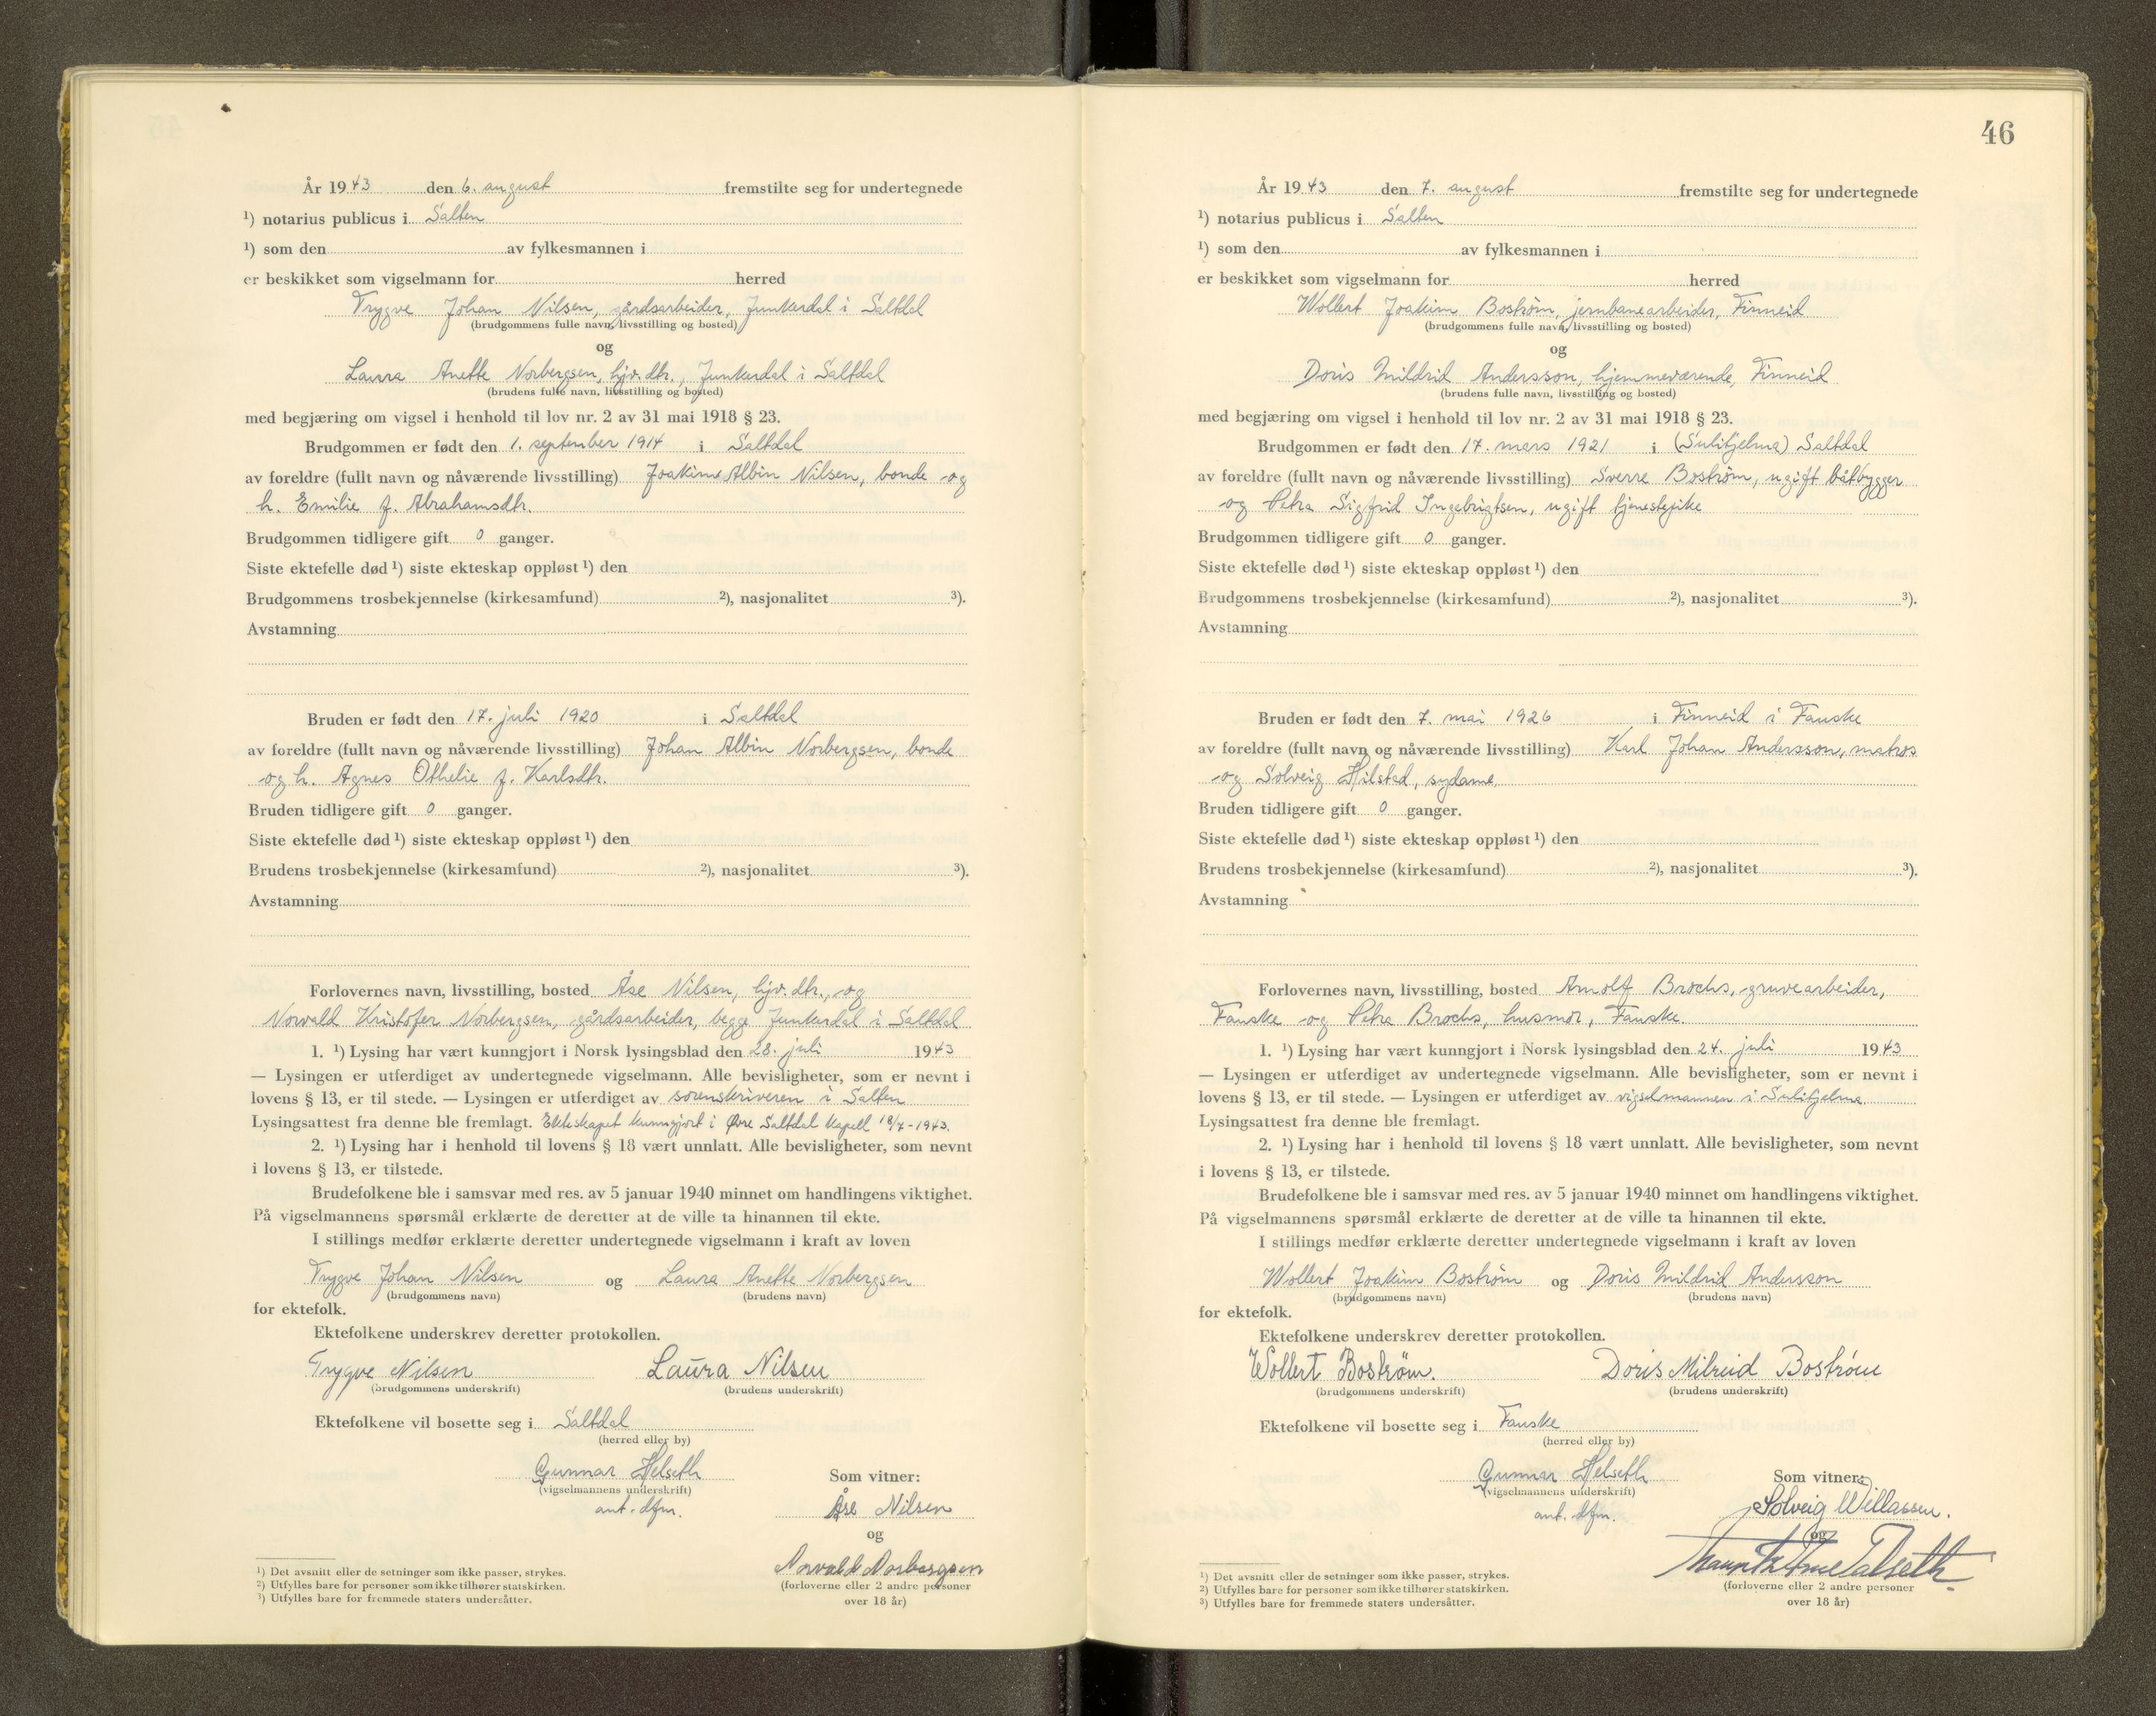 År 1943 den 6. august fremstilte seg for undertegnede
¹) notarius publicus i Salten
¹) som den av fylkesmannen i
er beskikket som vigselmann for herred
Trygve Johan Nilsen, gårdsarbeider, Junkerdal i Saltdal
(brudgommens fulle navn, livsstilling og bosted)
og
Laura Anette Norbergsen, hjv. dtr., Junkerdal i Saltdal
(brudens fulle navn, livsstilling og bosted)
med begjæring om vigsel i henhold til lov nr. 2 av 31 mai 1918 § 23.
Brudgommen er født den 1. september 1914 i Saltdal
av foreldre (fullt navn og nåværende livsstilling) Joakim Albin Nilsen, bonde og
h. Emilie f. Abrahamsdtr.
Brudgommen tidligere gift 0 ganger.
Siste ektefelle død ¹) siste ekteskap oppløst ¹) den
Brudgommens trosbekjennelse (kirkesamfund) ²), nasjonalitet ³).
Avstamning
Bruden er født den 17. juli 1920 i Saltdal
av foreldre (fullt navn og nåværende livsstilling) Johan Albin Norbergsen, bonde
og h. Agnes Othelie f. Karlsdtr.
Bruden tidligere gift 0 ganger.
Siste ektefelle død ¹) siste ekteskap oppløst ¹) den
Brudens trosbekjennelse (kirkesamfund) ²), nasjonalitet ³).
Avstamning
Forlovernes navn, livsstilling, bosted Åse Nilsen, hjv. dtr., og
Norvald Kristofer Norbergsen, gårdsarbeider, begge Junkerdal i Saltdal
1. ¹) Lysing har vært kunngjort i Norsk lysingsblad den 28. juli 1943
— Lysingen er utferdiget av undertegnede vigselmann. Alle bevisligheter, som er nevnt i
lovens § 13, er til stede. — Lysingen er utferdiget av sorenskriveren i Salten
Lysingsattest fra denne ble fremlagt. Ekteskapet kunngjort i Øvre Saltdal Kapell 18/7-1943.
2. ¹) Lysing har i henhold til lovens § 18 vært unnlatt. Alle bevisligheter, som nevnt
i lovens § 13, er tilstede.
Brudefolkene ble i samsvar med res. av 5 januar 1940 minnet om handlingens viktighet.
På vigselmannens spørsmål erklærte de deretter at de ville ta hinannen til ekte.
I stillings medfør erklærte deretter undertegnede vigselmann i kraft av loven
Trygve Johan Nilsen og Laura Anette Norbergsen
(brudgommens navn) (brudens navn)
for ektefolk.
Ektefolkene underskrev deretter protokollen.
Trygve Nilsen Laura Nilsen
(brudgommens underskrift) (brudens underskrift)
Ektefolkene vil bosette seg i Saltdal
(herred eller by)
Gunnar Helseth
(vigselmannens underskrift)
ant. dfm.
Som vitner:
Åse Nilsen
og
Norvald Norbergsen
(forloverne eller 2 andre personer
over 18 år)
¹) Det avsnitt eller de setninger som ikke passer, strykes.
²) Utfylles bare for personer som ikke tilhører statskirken.
³) Utfylles bare for fremmede staters undersåtter.
46
År 1943 den 7. august fremstilte seg for undertegnede
¹) notarius publicus i Salten
¹) som den av fylkesmannen i
er beskikket som vigselmann for herred
Wollert Joakim Bostrøm, jernbanearbeider, Finneid
(brudgommens fulle navn, livsstilling og bosted)
og
Doris Mildrid Andersson, hjemmeværende, Finneid
(brudens fulle navn, livsstilling og bosted)
med begjæring om vigsel i henhold til lov nr. 2 av 31 mai 1918 § 23.
Brudgommen er født den 17. mars 1921 i (Sulitjelma) Saltdal
av foreldre (fullt navn og nåværende livsstilling) Sverre Bostrøm, ugift båtbygger
og Petra Sigfrid Ingebrigtsen, ugift tjenestepike
Brudgommen tidligere gift 0 ganger.
Siste ektefelle død ¹) siste ekteskap oppløst ¹) den
Brudgommens trosbekjennelse (kirkesamfund) ²), nasjonalitet ³).
Avstamning
Bruden er født den 7. mai 1926 i Finneid i Fauske
av foreldre (fullt navn og nåværende livsstilling) Karl Johan Andersson, matros
og Solveig Hilstad, sydame.
Bruden tidligere gift 0 ganger.
Siste ektefelle død ¹) siste ekteskap oppløst ¹) den
Brudens trosbekjennelse (kirkesamfund) ²), nasjonalitet ³).
Avstamning
Forlovernes navn, livsstilling, bosted Arnolf Brochs, gruvearbeider,
Fauske og Petra Brochs, husmor, Fauske.
1. ¹) Lysing har vært kunngjort i Norsk lysingsblad den 24. juli 1943
— Lysingen er utferdiget av undertegnede vigselmann. Alle bevisligheter, som er nevnt i
lovens § 13, er til stede. — Lysingen er utferdiget av vigselmannen i Sulitjelma.
Lysingsattest fra denne ble fremlagt.
2. ¹) Lysing har i henhold til lovens § 18 vært unnlatt. Alle bevisligheter, som nevnt
i lovens § 13, er tilstede.
Brudefolkene ble i samsvar med res. av 5 januar 1940 minnet om handlingens viktighet.
På vigselmannens spørsmål erklærte de deretter at de ville ta hinannen til ekte.
I stillings medfør erklærte deretter undertegnede vigselmann i kraft av loven
Wollert Joakim Bostrøm og Doris Mildrid Andersson
(brudgommens navn) (brudens navn)
for ektefolk.
Ektefolkene underskrev deretter protokollen.
Wollert Bostrøm. Doris Milreid Bostrøm
(brudgommens underskrift) (brudens underskrift)
Ektefolkene vil bosette seg i Fauske
(herred eller by)
Gunnar Helseth
(vigselmannens underskrift)
ant. dfm.
Som vitner:
Solveig Willassen.
og
(forloverne eller 2 andre personer
over 18 år)
¹) Det avsnitt eller de setninger som ikke passer, strykes.
²) Utfylles bare for personer som ikke tilhører statskirken.
³) Utfylles bare for fremmede staters undersåtter.